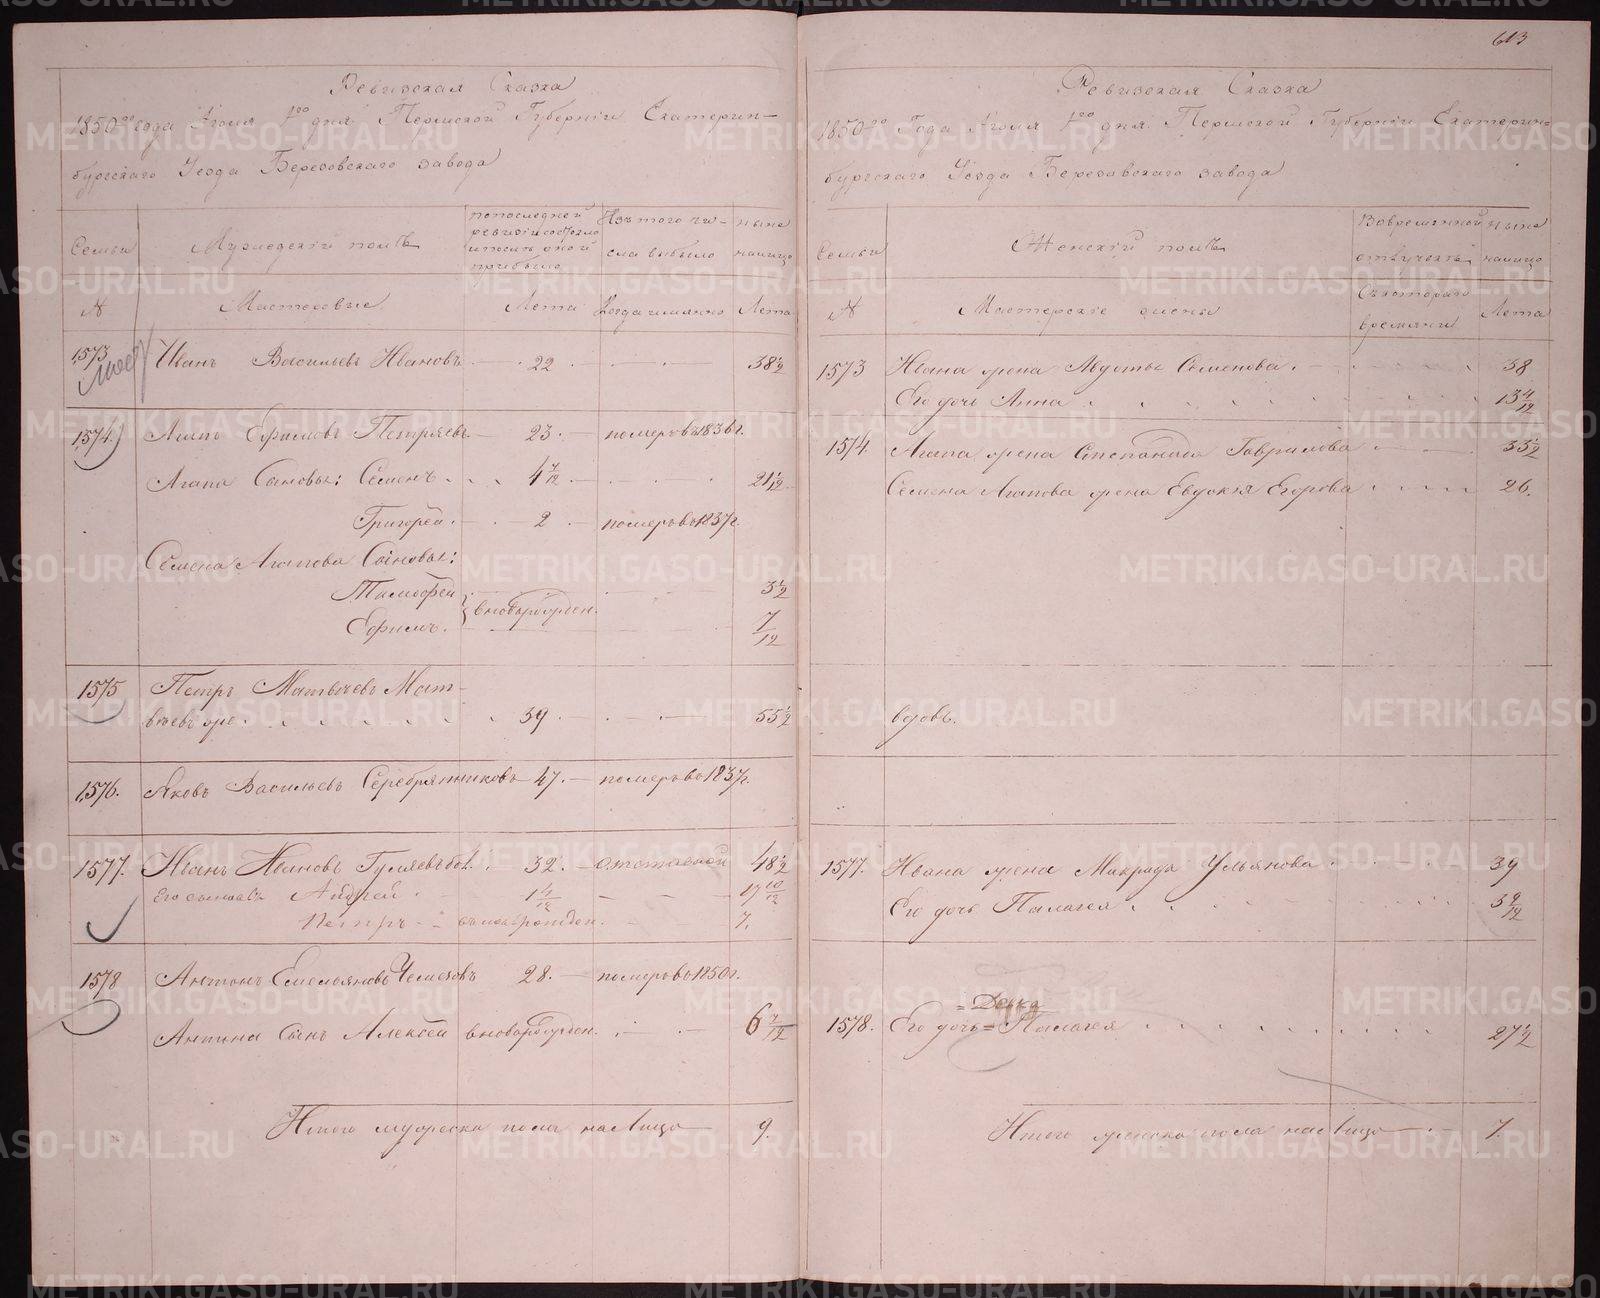 613
Ревизская Сказка
1850го года Июля 1го дня Пермской Губернiи Екатерин-
бургскаго Уезда Березовскаго завода
Семьи
Мужедскiй полъ
попоследней
ревизiи состояло
и после оной
прибыло
Изътого чи-
сла выбыло
ныне
налицо
№
Мастеровые
Лета
Когда имянно
Лета
1573 Иванъ Васильевъ Ивановъ 22 38 1/2
1574 Агапъ Ефимовъ Петряевъ 23. померъ въ 1836г.
Агапа Сыновья: Семенъ 4 7/12 21 1/12
Григорей 2 померъ въ 1837г.
Семена Агапова Сыновья:
Тимофей 3 1/2
вновьрожден.
Ефимъ. 7/12
1575 Петръ Матвеевъ Мат-
веевъ же 39 55 1/2
1576. Яковъ Васильевъ Серебрянниковъ 47. померъ во 1837г.
1577. Иванъ Ивановъ Гуляевъ бол. 32. отставной 48 1/2
Его сыновья Андрей 1 4/12 17 10/12
Петръ вновьрожден. 7.
1578 Антонъ Емельяновъ Чемезовъ 28. померъ во 1850г.
Антипа Сынъ Алексей вновьрожден. 6 7/12
Итого мужеска пола налицо 9.
Ревизская Сказка
1850го Года Июля 1го дня Пермской Губернiи Екатерин-
бургскаго Уезда Березовскаго завода
Семьи
Женскiй полъ
Вовременной
отлучкъ
ныне
налицо
№
Мастерскiе жены
Съкотораго
времяни
Лета
1573 Ивана жена Семенова. 38
Его дочь Анна 13 4/12
1574. Агапа жена Степанида Гаврилова 33 1/2
Семена Агапова жена Евдокiя Егорова 26.
вдовъ.
1577. Ивана жена Маврида Ульянова 39
Его дочь Палагея 5 9/12
=Девка
1578. Его дочь= Палагея 27 1/2
Итого женска пола налицо 7.
METRIKI.GASO-URAL.RU